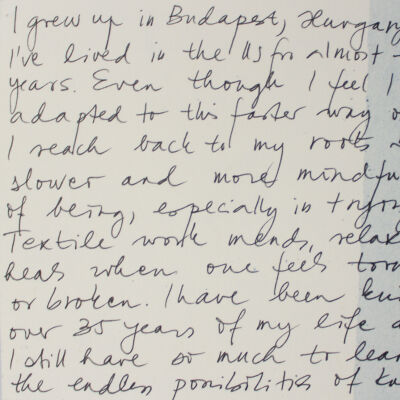 I grew up in Budapest, Hungary
I've lived in the US for almost
years. Even though I feel I
adapted to this faster way o
I reach back to my roots
slower and more mindfu
of being, especially in trying
Textile work mends, relax
heals when one feels torn
or broken. I have been kni
over 35 years of my life a
I still have so much to lear
the endless posibilities of kn